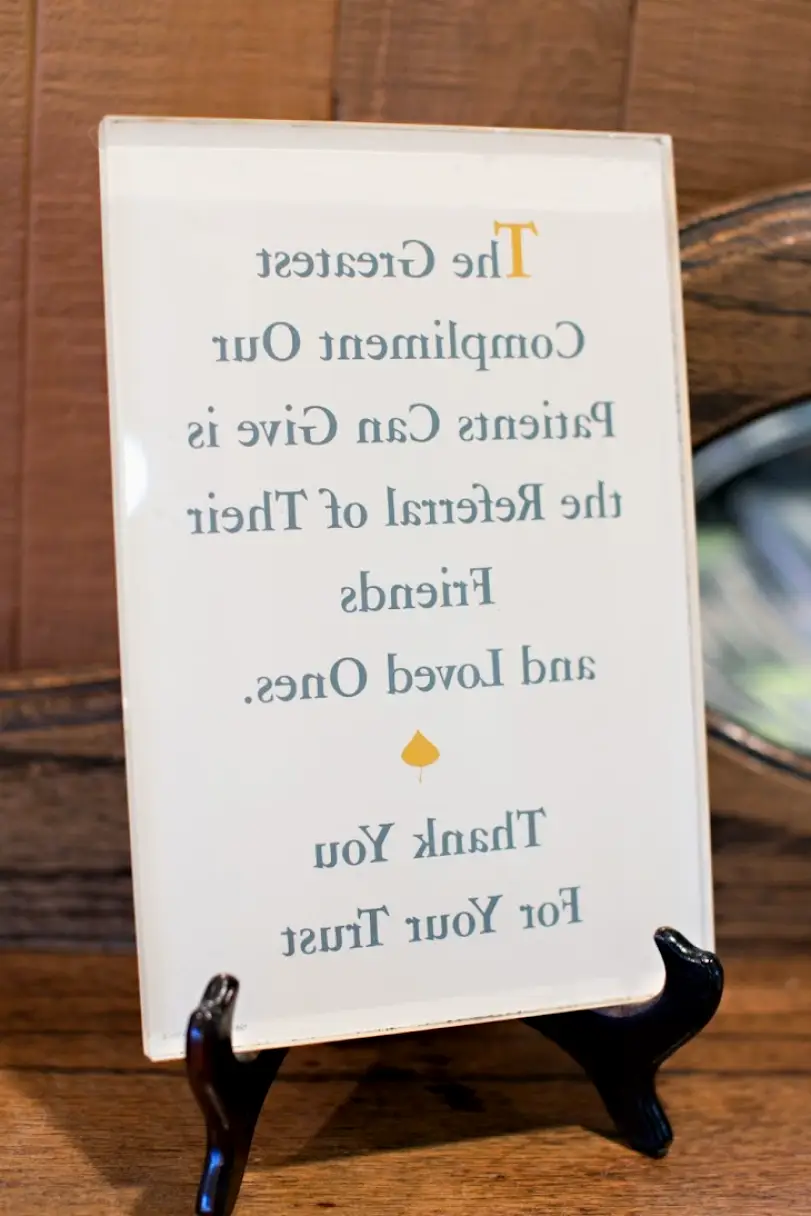 The Greatest
Compliment Our
Patients Can Give is
the Referral of Their
Friends
and Loved Ones.
Thank You
For Your Trust